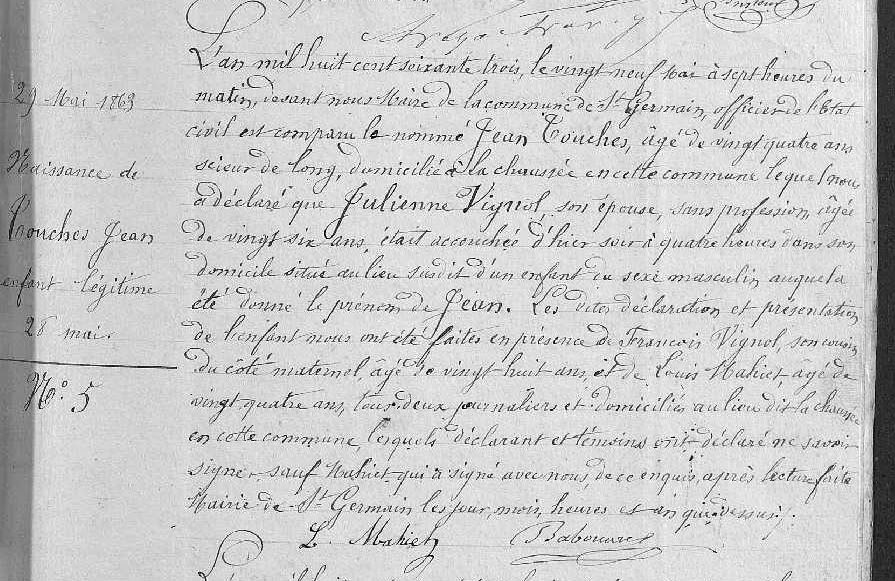 29 Mai 1863
Naissance de
Touches Jean
enfant légitime
28 mai.
N.o 5
L'an mil huit cent soixante trois, le vingt neuf Mai à sept heures du
matin, devant nous Maire de la commune de St Germain, officier de l'Etat
civil est comparu le nommé Jean Touches, âgé de vingt quatre ans
scieur de long, domicilié à la chaussée en cette commune lequel nous
a déclaré que Julienne Vignol, son épouse, sans profession, âgée
de vingt six ans, était accouchée d'hier soir à quatre heures dans son
domicile situé au lieu susdit d'un enfant du sexe masculin auquel a
été donné le prénom de Jean. Les dites déclaration et présentation
de l'enfant nous ont été faites en présence de François Vignol, son cousin
du côté maternel, âgé de vingt huit ans, et de Louis Mahiet, âgé de
vingt quatre ans, tous deux journaliers et domiciliés au lieu dit la chaussée
en cette commune, lesquels déclarant et témoins ont déclaré ne savoir
signer, sauf Mahiet qui a signé avec nous, de ce enquis, après lecture faite
Mairie de St Germain les jour, mois, heures et an que dessus.
L. Mahiet